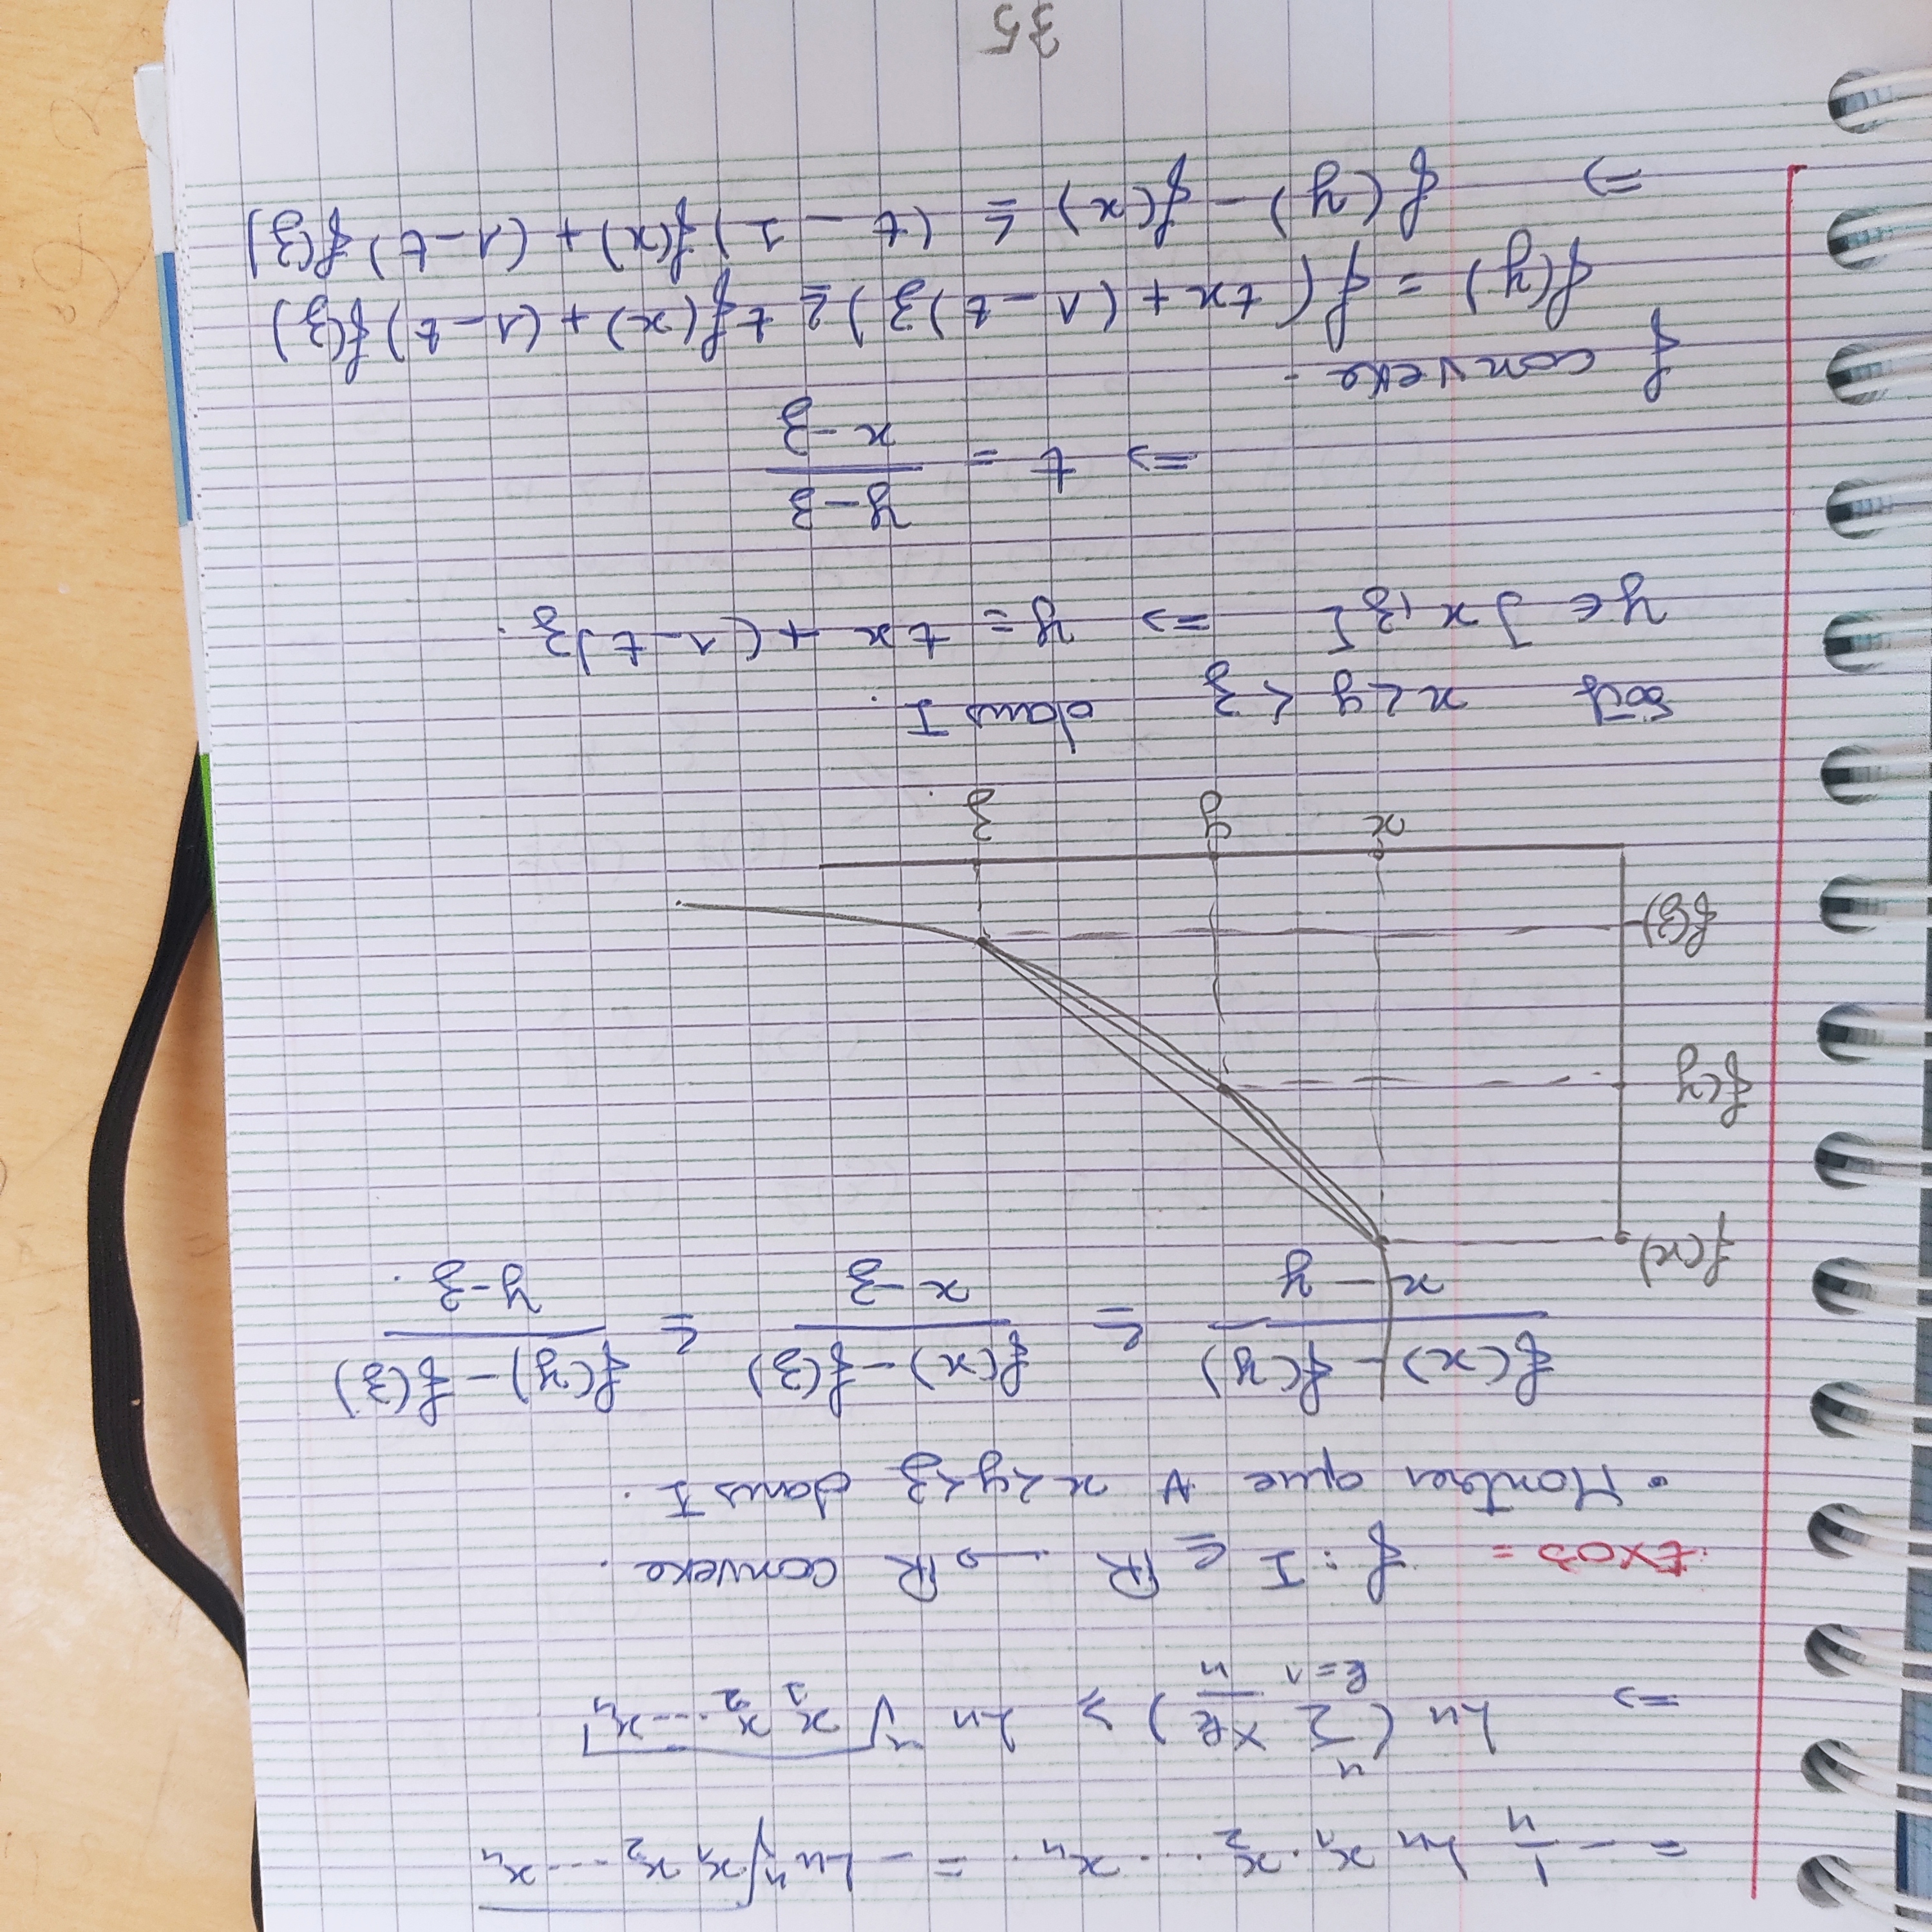 = - 1/n Ln x₁ . x₂ . . . xₙ . = - Ln ⁿ√(x₁ x₂ --- xₙ)
=> Ln ( Σ_{k=1}^{n} xk/n ) ≥ Ln ⁿ√(x₁ x₂ ---- xₙ)
EXO3 = f : I ⊆ ℝ → ℝ convexe .
• Montrer que ∀ x < y < z dans I .
(f(x) - f(y))/(x - y) ≤ (f(x) - f(z))/(x - z) ≤ (f(y) - f(z))/(y - z) .
f(x)
f(y
f(z)
x y z .
Soit x < y < z dans I .
y ∈ ]x , z[ => y = tx + (1 - t)z .
=> t = (y - z)/(x - z)
f convexe -
f(y) = f( tx + (1 - t)z ) ≤ t f(x) + (1 - t) f(z)
=> f(y) - f(x) ≤ (t - 1) f(x) + (1 - t) f(z)
35